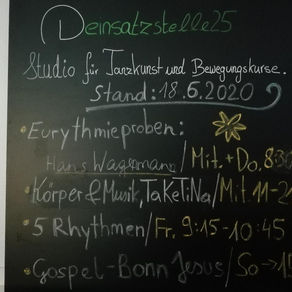 Deinsatzstelle25
Studio für Tanzkunst und Bewegungskurse.
Stand: 18.6.2020
• Eurythmieproben:
Hans Wagemann / Mit. + Do. 8:30
• Körper & Musik, TaKeTiNa / Mit 11-2
• 5 Rhythmen / Fr. 9:15-10:45
• Gospel-Bonn Jesus / So → 19